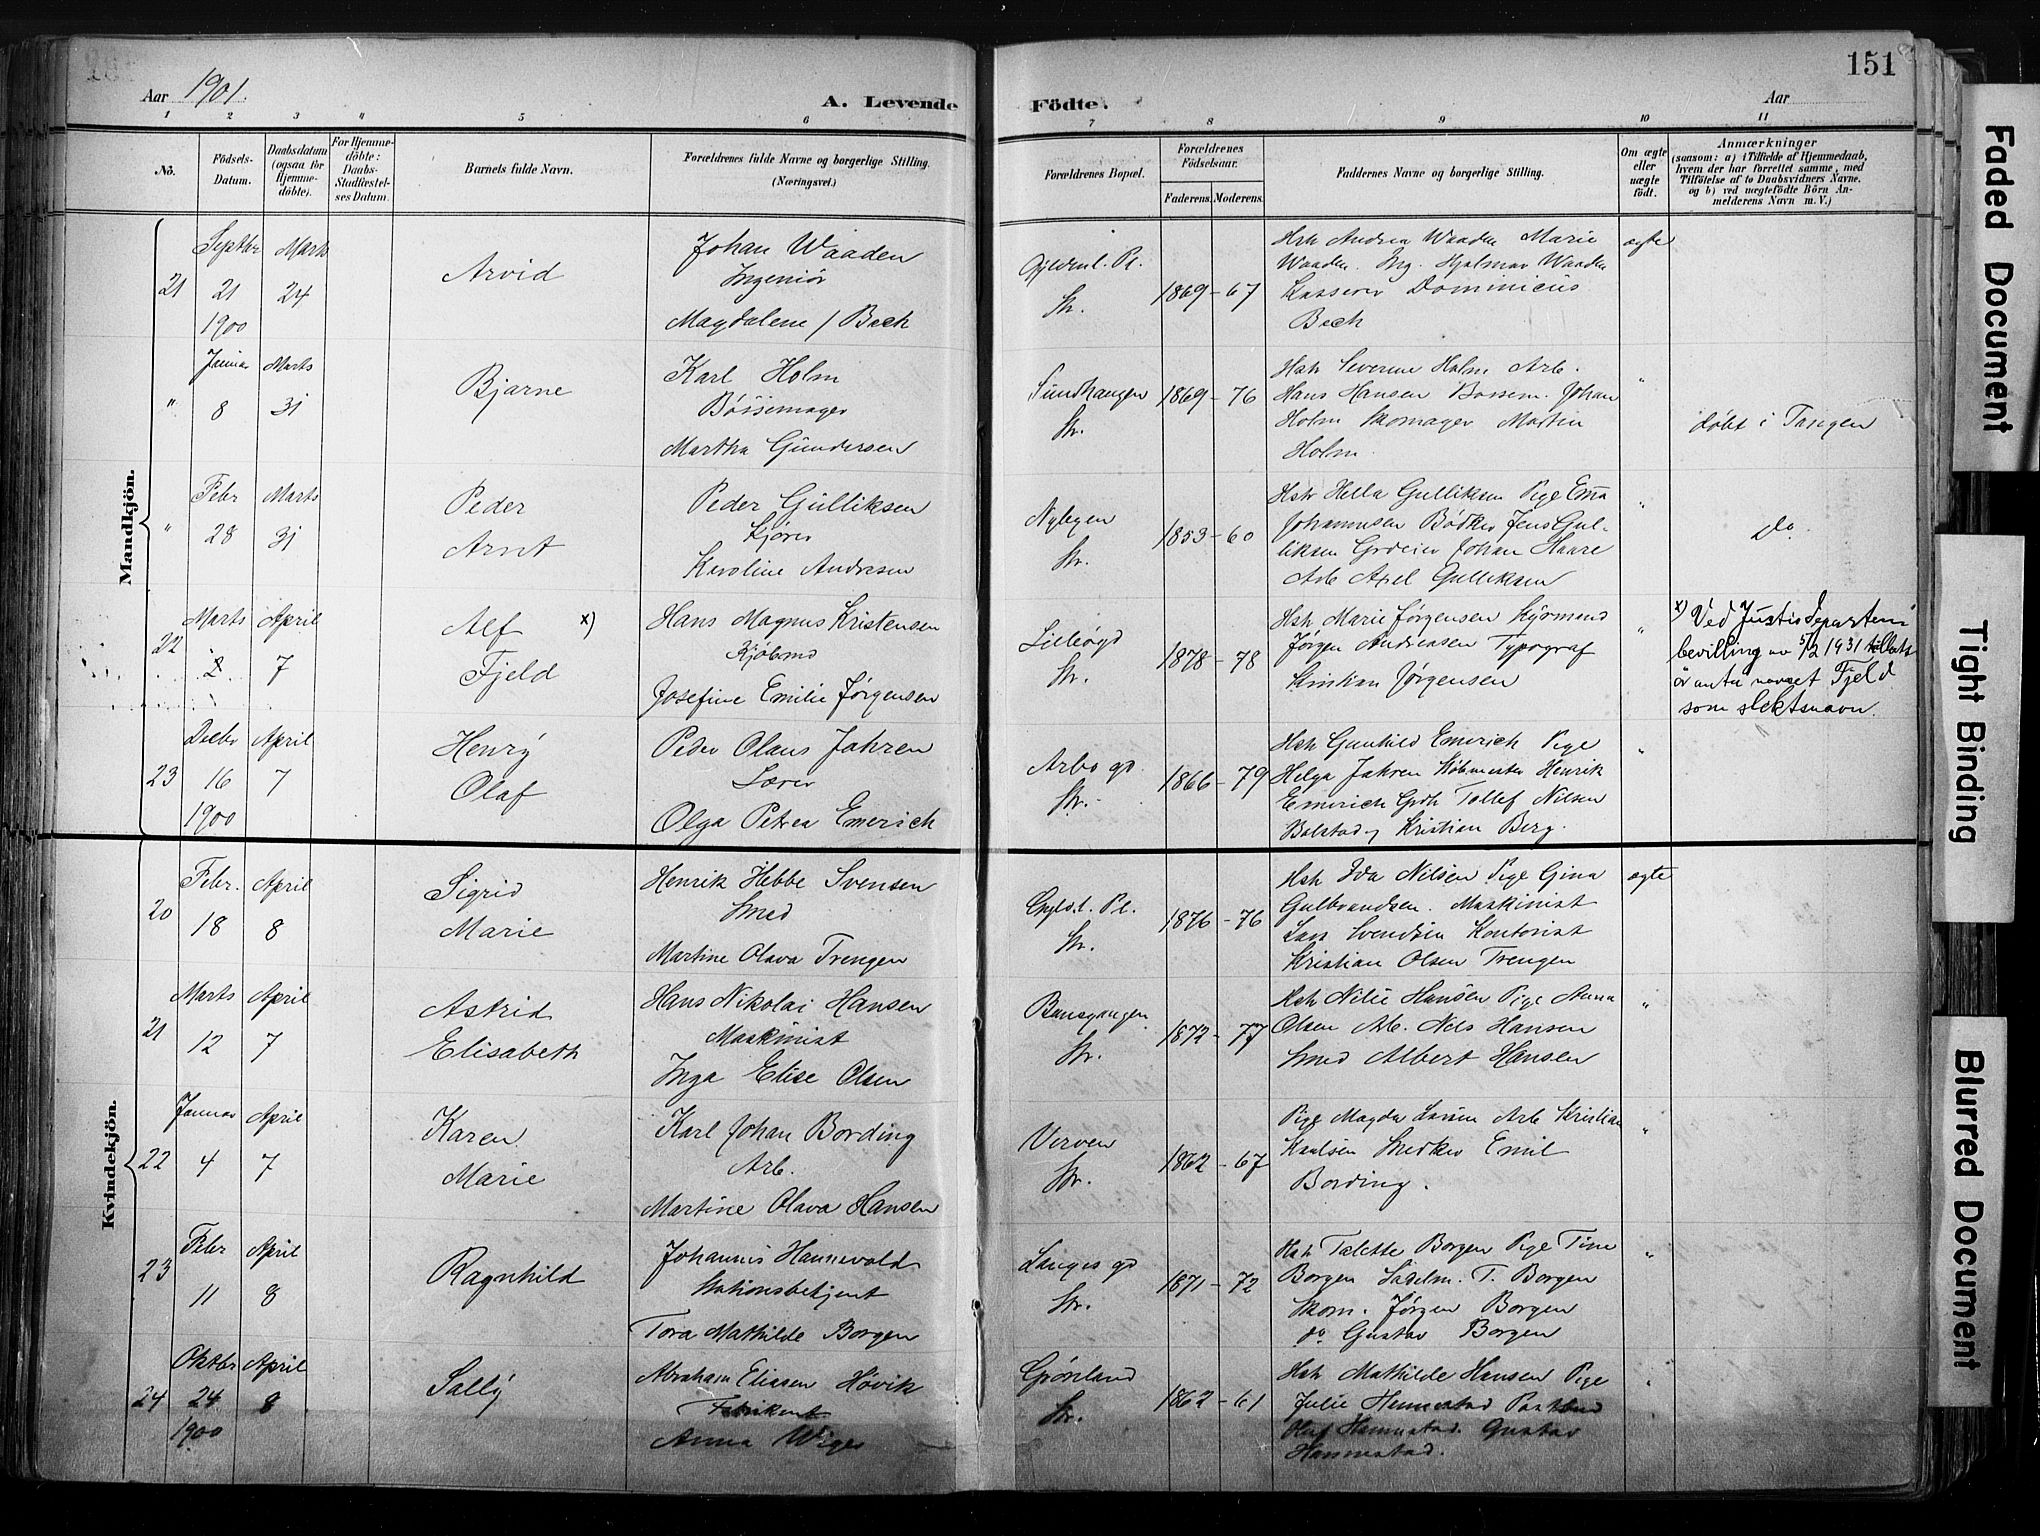 Aar 1901.
A. Levende
Födte.
Aar
151
1
2
3
4
5
6
7
8
9
10
11
No.
Födsels-
Datum.
Daabsdatum
(ogsaa for
Hjemme-
döbte).
For Hjemme-
döbte:
Daabs-
Stadfæstel-
ses Datum.
Barnets fulde Navn.
Forældrenes fulde Navne og borgerlige Stilling.
(Næringsvei.)
Forældrenes Bopæl.
Forældrenes
Födselsaar.
Faderens. Moderens.
Faddernes Navne og borgerlige Stilling.
Om ægte
eller
uægte
født.
Anmærkninger
(saasom: a) i Tilfælde af Hjemmedaab,
hvem der har forrettet samme, med
Tilföielse af to Daabsvidners Navne,
og b) ved uægtefödte Börn An-
melderens Navn m. V.)
Mandkjön.
21
Septbr
21
1900
Marts
24
Arvid
Johan Waaden
Ingeniör
Magdalene / Bech
Gyldenl. Pl.
Str.
1869 - 67
Hstr Andrea Waaden Marie
Waaden. Ing. Hjalmar Waaden
Kasserer Dominicus
Bech
ægte
"
Januar
8
Marts
31
Bjarne
Karl Holm
Bössemager
Martha Gundersen
Sundhaugen
Str.
1869 - 76
Hstr Severine Holm Arb.
Hans Hansen Bossem. Johan
Holm Skomager Martin
Holm.
"
döbt i Tangen
"
Febr
28
Marts
31
Peder
Arnt
Peder Gulliksen
Kjörer
Karoline Andresen
Nybyen
Str.
1853 - 60
Hstr Hella Gulliksen Pige Ema
Johannesen Bödker Jens Gul-
liksen Grdeier Johan Haare
Arb Axel Gulliksen
"
Do.
22
Marts
2
April
7
Alf x)
Fjeld
Hans Magnus Kristensen
Kjöbmd
Josefine Emilie Jørgensen
Lilleögd
Str.
1878 - 78
Hstr Marie Jørgensen Kjörmend
Jørgen Andreasen Typograf
Kristian Jørgensen
"
x) Ved Justisdeparteni-
bevilling av 5/2 1931 tillatt
å anta navnet Fjeld
som slektsnavn.
23
Decbr
16
1900
April
7
Henrÿ
Olaf
Peder Olaus Jahren
Lærer
Olga Petrea Emerich
Arbo gd
Str.
1866 - 79
Hstr Gunhild Emerich Pige
Helga Jahren Kobmester Henrik
Emerich Grdb Tollef Nilsen
Bolstad, Kristian Berg.
"
Kvindekjön.
20
Febr.
18
April
8
Sigrid
Marie
Henrik Hebbe Svensen
Smed
Martine Olava Trengen
Gyld.l. Pl.
Str.
1876 - 76
Hstr Ida Nilsen Pige Gina
Gulbrandsen. Maskinist
Lars Svendsen Kontorist
Kristian Olsen Trengen
ægte
21
Marts
12
April
7
Astrid
Elisabeth
Hans Nikolai Hansen
Maskinist
Inga Elise Olsen
Bansgangen
Str.
1872 - 77
Hstr Nilie Hansen Pige Anna
Olsen Arb. Nels Hansen
Smed Albert Hansen
"
22
Januar
4
April
7
Karen
Marie
Karl Johan Bording
Arb.
Martine Olava Hansen
Verven
Str.
1862 - 67
Pige Magda Larsen Arb Kristian
Smedker Emil
Bording.
"
23
Febr
11
April
8
Ragnhild
Johannes Hannevold
Stationsbetjent
Tora Mathilde Borgen
Langes gd
Str.
1871 - 72
Hstr Talette Borgen Pige Tine
Borgen Sadelm. T. Borgen
Skom. Jörgen Borgen
do Gustav Borgen
"
24
Oktbr
24
1900
April
8
Sallÿ
Abraham Eliasen Hövik
Fabrikant
Anna Wiger
Grönland
Str.
1862 - 61
Hstr Mathilde Hansen Pige
Julie Hemmestad Postbud
Olaf Hemmestad. Gustav
Hemmestad.
"
Faded Document
Tight Binding
Blurred Document